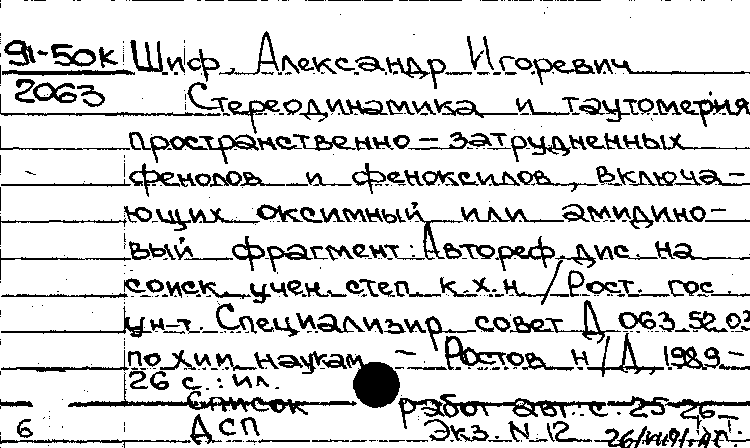 91-50К Шиф, Александр Игоревич
2063 Стереодинамика и таутомерия
пространственно-затрудненных
фенолов и феноксилов, включа-
ющих оксимный или амидино-
вый фрагмент: Автореф. дис. на
соиск. учен. степ. к.х.н. / Рост. гос.
ун-т. Специализир. совет Д 063.52.03
по хим наукам - Ростов н/Д, 1989.-
26 с.: ил.
Список работ авт.: с. 25-26
6 ДСП Экз. N 12